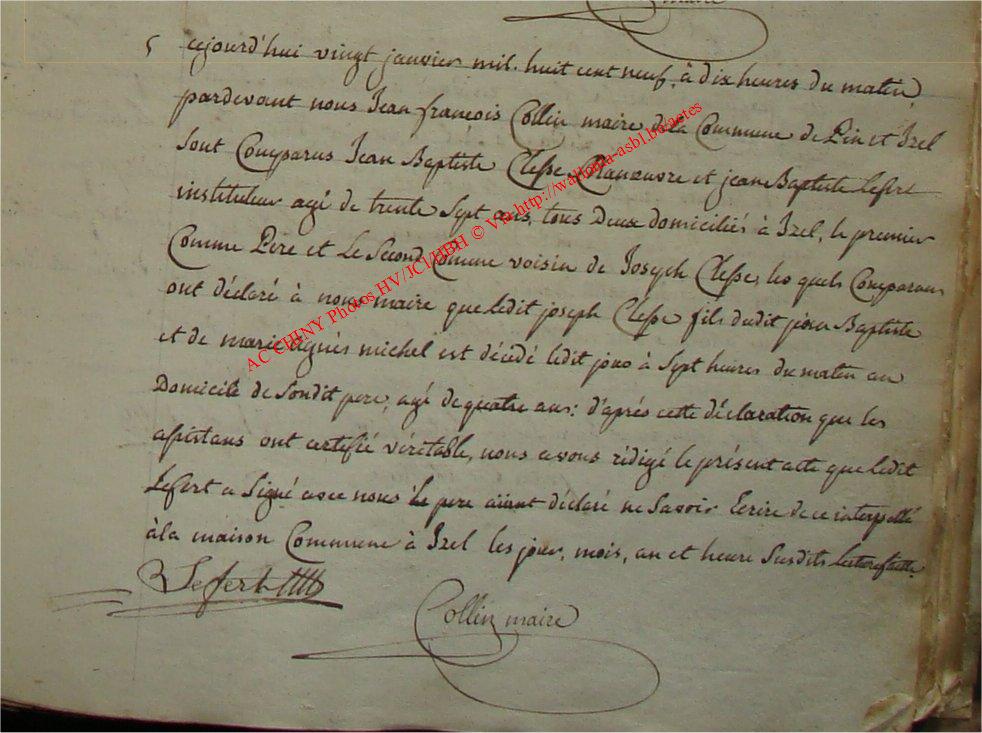 maire
5 cejourd'hui vingt janvier mil. huit cent neuf, à dix heures du matin,
pardevant nous Jean françois Collin maire de la Commune de Pin et Izel
Sont Comparus Jean Baptiste Clesse, Manœuvre et jean Baptiste Lefert
instituteur agé de trente Sept ans, tous Deux domiciliés à Izel, le premier
Comme Pere et Le Second Comme voisin de Joseph Clesse, les quels Comparans
ont déclaré à nous maire que ledit joseph Clesse fils dudit jean Baptiste
et de marie agnès michel est décédé ledit jour à Sept heures du matin au
Domicile de Sondit pere, agé de quatre ans: d'après cette déclaration que les
assistans ont certifié véritable, nous avons rédigé le présent acte que ledit
Lefert a Signé avec nous le pere aiant déclaré ne Savoir Ecrire de ce interpellé
à la maison Commune à Izel les jour, mois, an et heure Susdits
Lefert
Collin maire
AC CHINY Photos HV/JCI/HBH © Via http://wallonia-asbl.be/actes